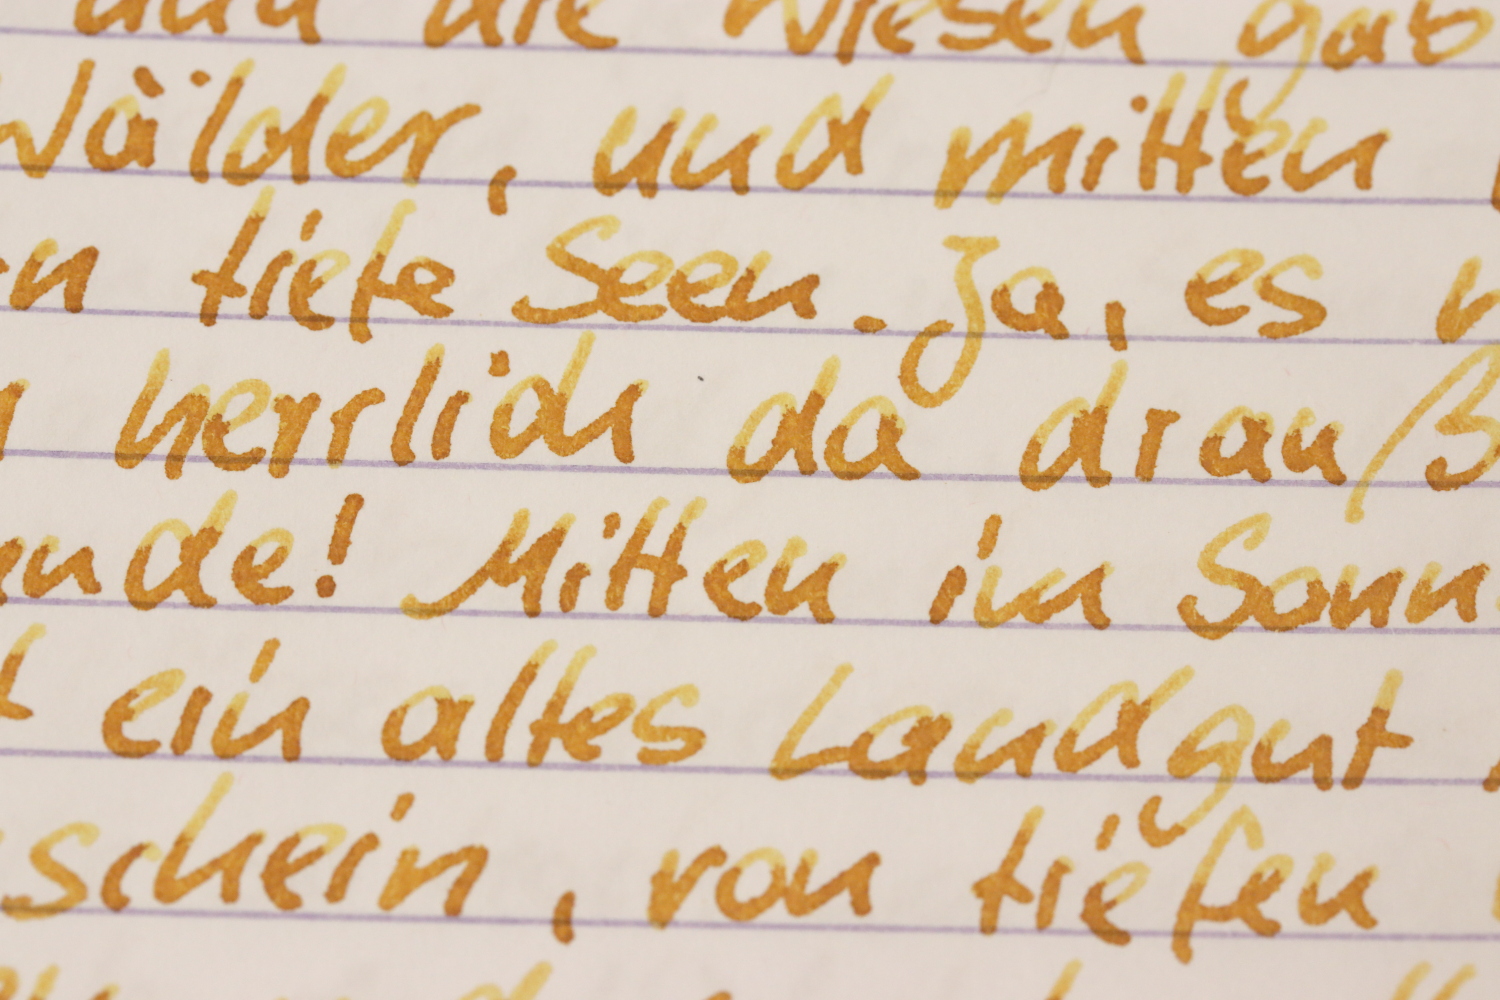 und die Wiesen gab
Wälder, und mitten
en tiefe Seen. Ja, es w
herrlich da drauß
unde! Mitten im Sonn
t ein altes Landgut
schein, von tiefen